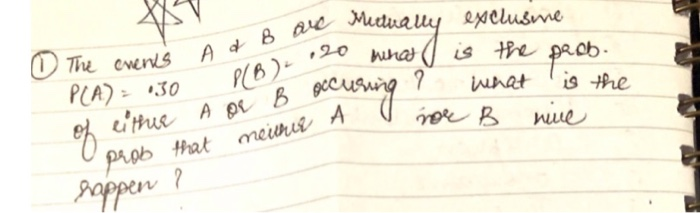 ① The events A & B are Mutually exclusive
P(A) = .30 P(B) = .20 what is the prob.
of either A or B occuring ? what is the
prob that neither A nor B will
happen ?